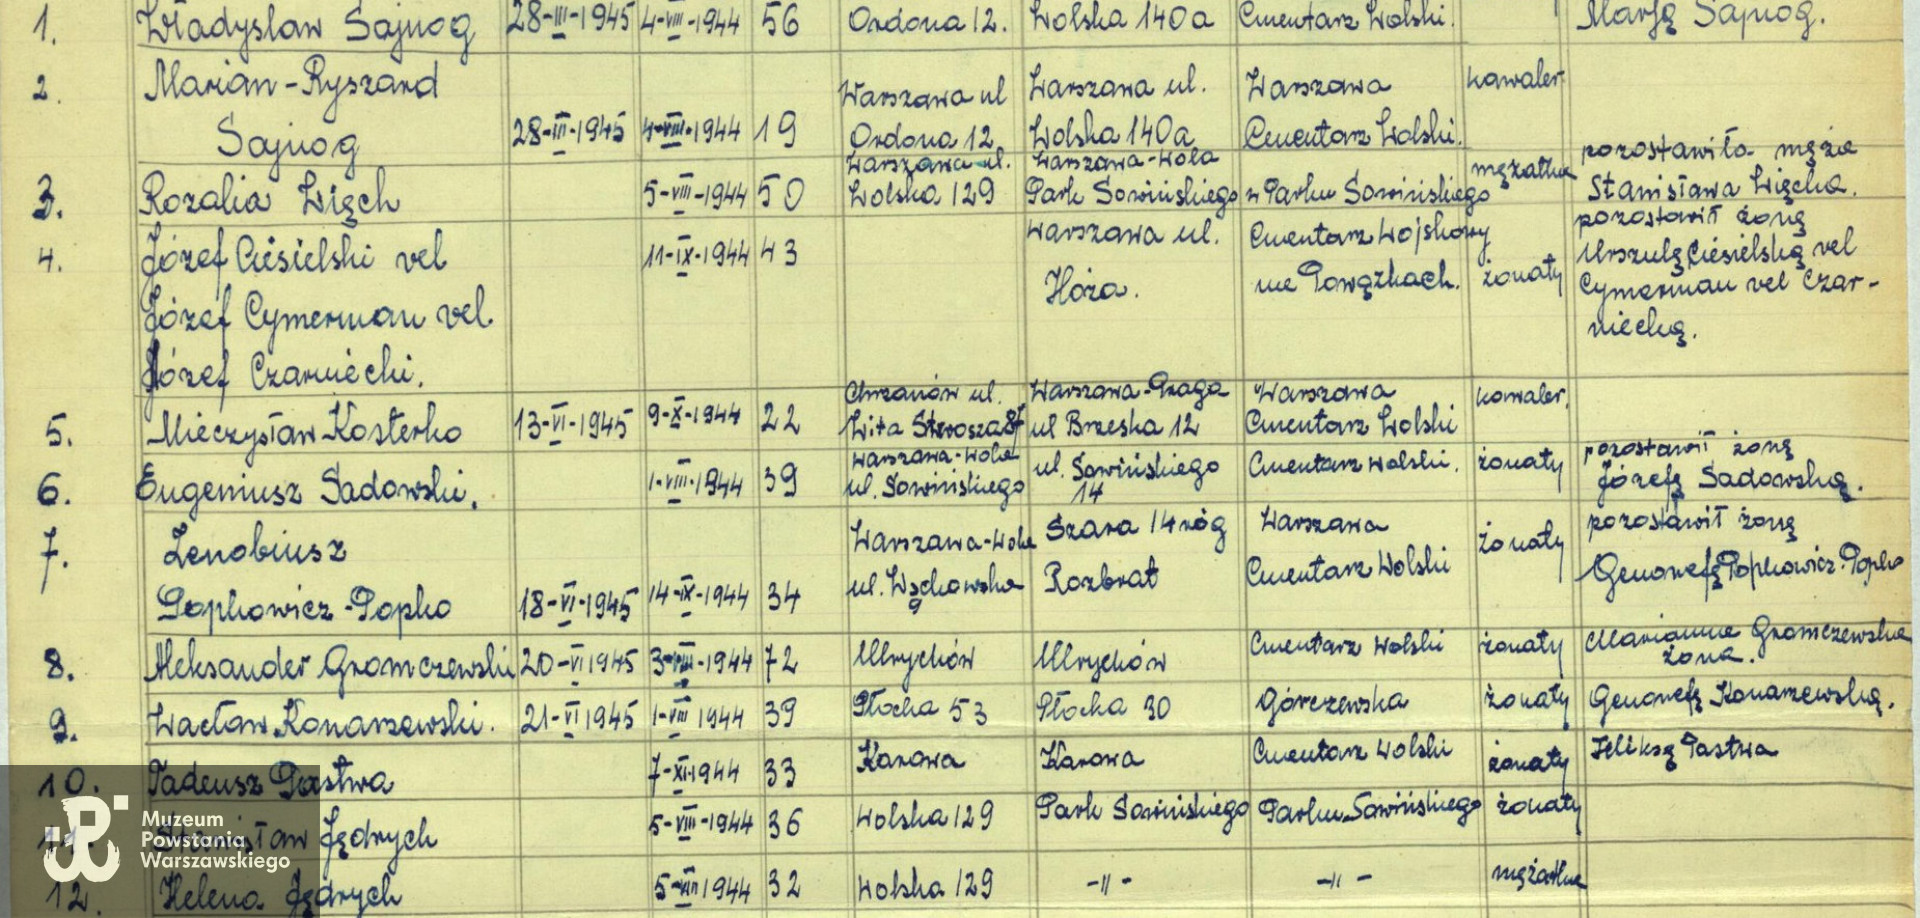 1. Władysław Sajnog 28-III-1945 4-VIII-1944 56 Ordona 12. Wolska 140a Cmentarz Wolski. Marję Sajnog.
2. Marian-Ryszard Sajnog 28-III-1945 4-VIII-1944 19 Warszawa ul Ordona 12 Warszawa ul. Wolska 140a Warszawa Cmentarz Wolski. kawaler
3. Rozalia Więch 5-VIII-1944 50 Warszawa ul. Wolska 129 Warszawa-Wola Park Sowińskiego w Parku Sowińskiego mężatka pozostawiła męża Stanisława Więcha.
4. Józef Ciesielski vel 11-IX-1944 43 Warszawa ul. Hoża. Cmentarz Wojskowy na Powązkach. żonaty pozostawił żonę Urszulę Ciesielską vel
Józef Cymerman vel Cymerman vel Czar-
Józef Czarniecki. niecką.
5. Mieczysław Kosterko 13-VI-1945 9-X-1944 22 Chrzanów ul. Wita Stwosza 8f Warszawa-Praga ul Brzeska 12 Warszawa Cmentarz Wolski kawaler.
6. Eugeniusz Sadowski. 1-VIII-1944 39 Warszawa-Wola ul. Sowińskiego ul. Sowińskiego 14 Cmentarz Wolski. żonaty pozostawił żonę Józefę Sadowską.
7. Zenobiusz Popkowicz-Popko 18-VI-1945 14-IX-1944 34 Warszawa-Wola ul. Wschowska 9 Szara 14 róg Rozbrat Warszawa Cmentarz Wolski żonaty pozostawił żonę Genowefę Popkowicz-Popko
8. Aleksander Gromczewski 20-VI 1945 3-VIII-1944 72 Ulrychów Ulrychów Cmentarz Wolski żonaty Marianna Gromczewska żona.
9. Wacław Konarzewski. 21-VI 1945 1-VIII 1944 39 Płocka 53 Płocka 30 Górczewska żonaty Genowefę Konarzewską.
10. Tadeusz Pastwa 7-XI-1944 33 Karowa Karowa Cmentarz Wolski żonaty Feliksę Pastwa
11. Stanisław Jędrych 5-VIII-1944 36 Wolska 129 Park Sowińskiego Parku Sowińskiego żonaty
12. Helena Jędrych 5-VIII 1944 32 Wolska 129 -"- -"- mężatka
Muzeum
Powstania
Warszawskiego